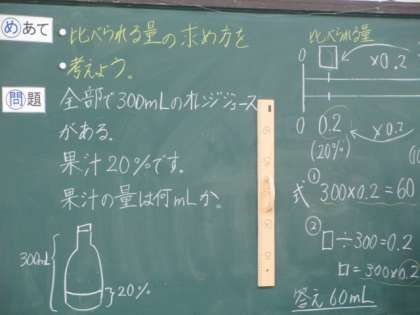 めあて
・比べられる量の求め方を
・考えよう。
問題
全部で300mLのオレンジジュース
がある。
果汁20%です。
果汁の量は何mLか。
300mL
20%
比べられる量
0 □ ×0.2
0 0.2 ×0.2
(20%)
式 ① 300×0.2=60
② □÷300=0.2
□=300×0.2
答え 60mL